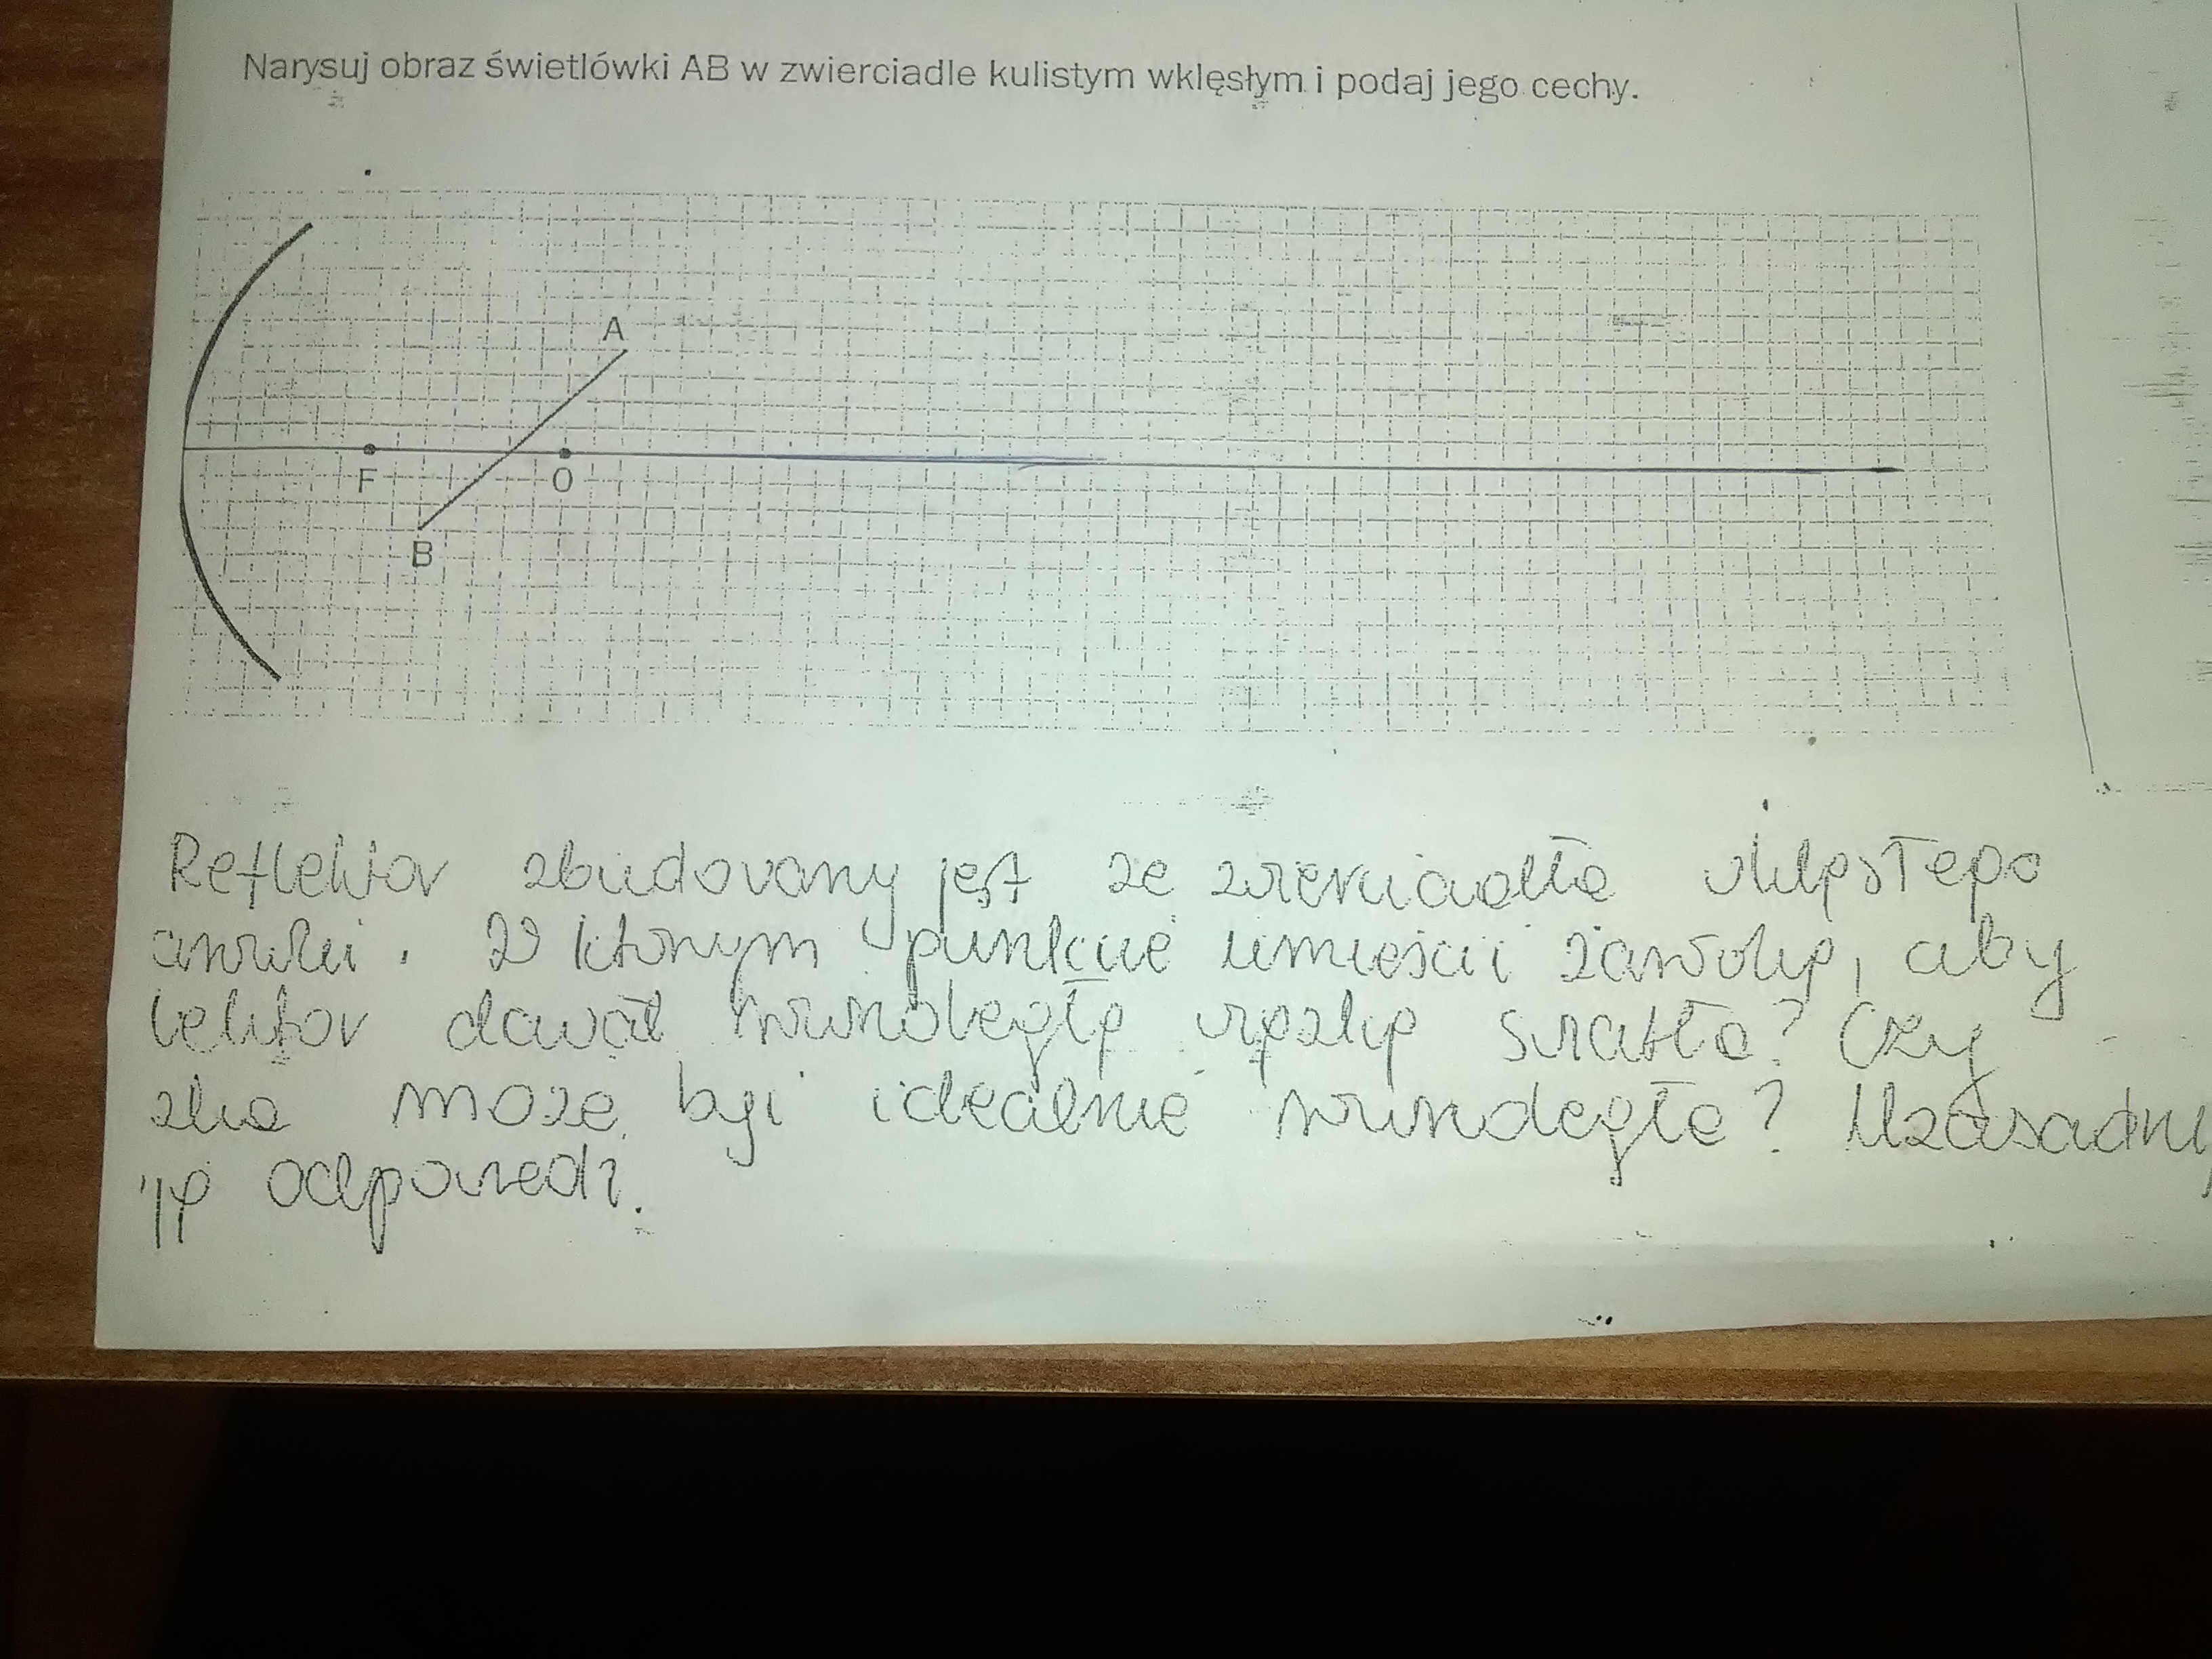 Narysuj obraz świetlówki AB w zwierciadle kulistym wklęsłym i podaj jego cechy.
A
F
O
B
Reflektor zbudowany jest ze zwierciadła wklęsłego
żarówki. W którym punkcie umieścić żarówkę, aby
lektor dawał równoległą wiązkę światła? Czy
zka może być idealnie równoległa? Uzasadnij
ją odpowiedź.